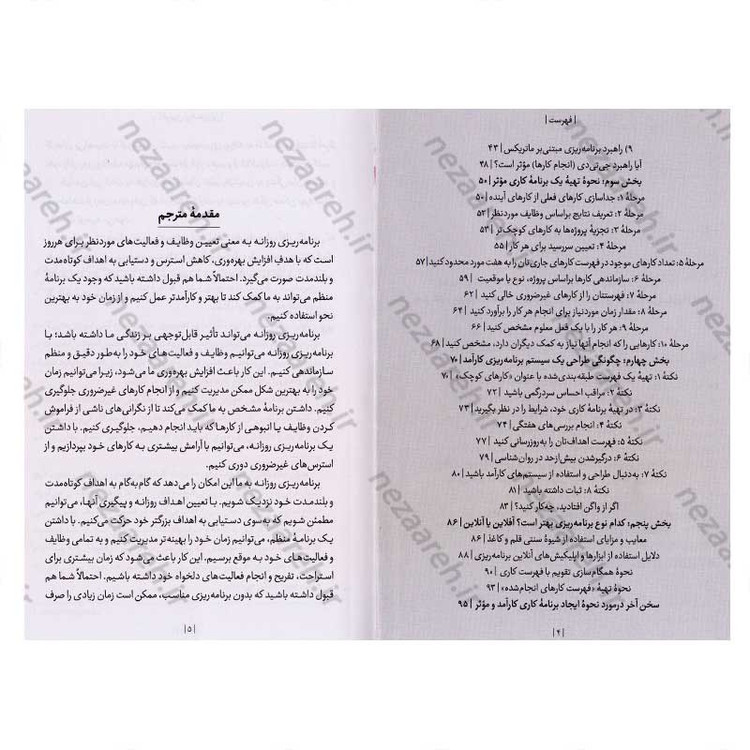 | فهرست |
۹) راهبرد برنامه‌ریزی مبتنی‌بر ماتریکس | ۴۳
آیا راهبرد جی‌تی‌دی (انجام کارها) مؤثر است؟ | ۴۸
بخش سوم: نحوهٔ تهیهٔ یک برنامهٔ کاری مؤثر | ۵۰
مرحلهٔ ۱: جداسازی کارهای فعلی از کارهای آینده | ۵۰
مرحلهٔ ۲: تعریف نتایج براساس وظایف موردنظر | ۵۲
مرحلهٔ ۳: تجزیهٔ پروژه‌ها به کارهای کوچک‌تر | ۵۳
مرحلهٔ ۴: تعیین سررسید برای هر کار | ۵۵
مرحلهٔ ۵: تعداد کارهای موجود در فهرست کارهای جاری‌تان را به هفت مورد محدود کنید | ۵۷
مرحلهٔ ۶: سازماندهی کارها براساس پروژه، نوع یا موقعیت | ۵۹
مرحلهٔ ۷: فهرستتان را از کارهای غیرضروری خالی کنید | ۶۲
مرحلهٔ ۸: مقدار زمان موردنیاز برای انجام هر کار را برآورد کنید | ۶۴
مرحلهٔ ۹: هر کار را با یک فعل معلوم مشخص کنید | ۶۶
مرحلهٔ ۱۰: کارهایی را که انجام آنها نیاز به کمک دیگران دارد، مشخص کنید | ۶۸
بخش چهارم: چگونگی طراحی یک سیستم برنامه‌ریزی کارآمد | ۷۰
نکتهٔ ۱: تهیهٔ یک فهرست طبقه‌بندی‌شده با عنوان «کارهای کوچک» | ۷۰
نکتهٔ ۲: مراقب احساس سردرگمی باشید | ۷۲
نکتهٔ ۳: در تهیهٔ برنامهٔ کاری خود، شرایط را در نظر بگیرید | ۷۳
نکتهٔ ۴: انجام بررسی‌های هفتگی | ۷۴
نکتهٔ ۵: فهرست اهداف‌تان را به‌روزرسانی کنید | ۷۷
نکتهٔ ۶: درگیرشدن بیش‌ازحد در روان‌شناسی | ۷۹
نکتهٔ ۷: به‌دنبال طراحی و استفاده از سیستم‌های کارآمد باشید | ۸۰
نکتهٔ ۸: ثبات داشته باشید | ۸۱
اگر از واگن افتادید، چه‌کار کنید؟ | ۸۳
بخش پنجم: کدام نوع برنامه‌ریزی بهتر است؟ آفلاین یا آنلاین | ۸۶
معایب و مزایای استفاده از شیوهٔ سنتی قلم و کاغذ | ۸۶
دلایل استفاده از ابزارها و اپلیکیش‌های آنلاین برنامه‌ریزی | ۸۸
نحوهٔ همگام‌سازی تقویم با فهرست کاری | ۹۰
نحوهٔ تهیهٔ «فهرست کارهای انجام‌شده» | ۹۳
سخن آخر درمورد نحوهٔ ایجاد برنامهٔ کاری کارآمد و مؤثر | ۹۵
| ۴ |
مقدمهٔ مترجم
برنامه‌ریزی روزانه به معنی تعیین وظایف و فعالیت‌های موردنظر برای هرروز
است که با هدفِ افزایش بهره‌وری، کاهش استرس و دستیابی به اهداف کوتاه‌مدت
و بلندمدت صورت می‌گیرد. احتمالاً شما هم قبول داشته باشید که وجود یک برنامهٔ
منظم می‌تواند به ما کمک کند تا بهتر و کارآمدتر عمل کنیم و از زمان خود به بهترین
نحو استفاده کنیم.
برنامه‌ریزی روزانه می‌تواند تأثیر قابل‌توجهی بر زندگی ما داشته باشد؛ با
برنامه‌ریزی روزانه می‌توانیم وظایف و فعالیت‌های خود را به‌طور دقیق و منظم
سازماندهی کنیم. این کار باعث افزایش بهره‌وری ما می‌شود، زیرا می‌توانیم زمان
خود را به بهترین شکل ممکن مدیریت کنیم و از انجام کارهای غیرضروری جلوگیری
کنیم. داشتن برنامهٔ مشخص به ما کمک می‌کند تا از نگرانی‌های ناشی از فراموش
کردن وظایف یا انبوهی از کارها که باید انجام دهیم، جلوگیری کنیم. با داشتن
یک برنامه‌ریزی روزانه، می‌توانیم با آرامش بیشتری به کارهای خود بپردازیم و از
استرس‌های غیرضروری دوری کنیم.
برنامه‌ریزی روزانه به ما این امکان را می‌دهد که گام‌به‌گام به اهداف کوتاه‌مدت
و بلندمدت خود نزدیک شویم. با تعیین اهداف روزانه و پیگیری آنها، می‌توانیم
مطمئن شویم که به‌سوی دستیابی به اهداف بزرگتر خود حرکت می‌کنیم. با داشتن
یک برنامهٔ منظم، می‌توانیم زمان خود را بهینه‌تر مدیریت کنیم و به تمامی وظایف
و فعالیت‌های خود به موقع برسیم. این کار باعث می‌شود که زمان بیشتری برای
استراحت، تفریح و انجام فعالیت‌های دلخواه خود داشته باشیم. احتمالاً شما هم
قبول داشته باشید که بدون برنامه‌ریزی مناسب، ممکن است زمان زیادی را صرف
| ۵ |
nezaareh.ir
nezaareh.ir
nezaareh.ir
nezaareh.ir
nezaareh.ir
nezaareh.ir